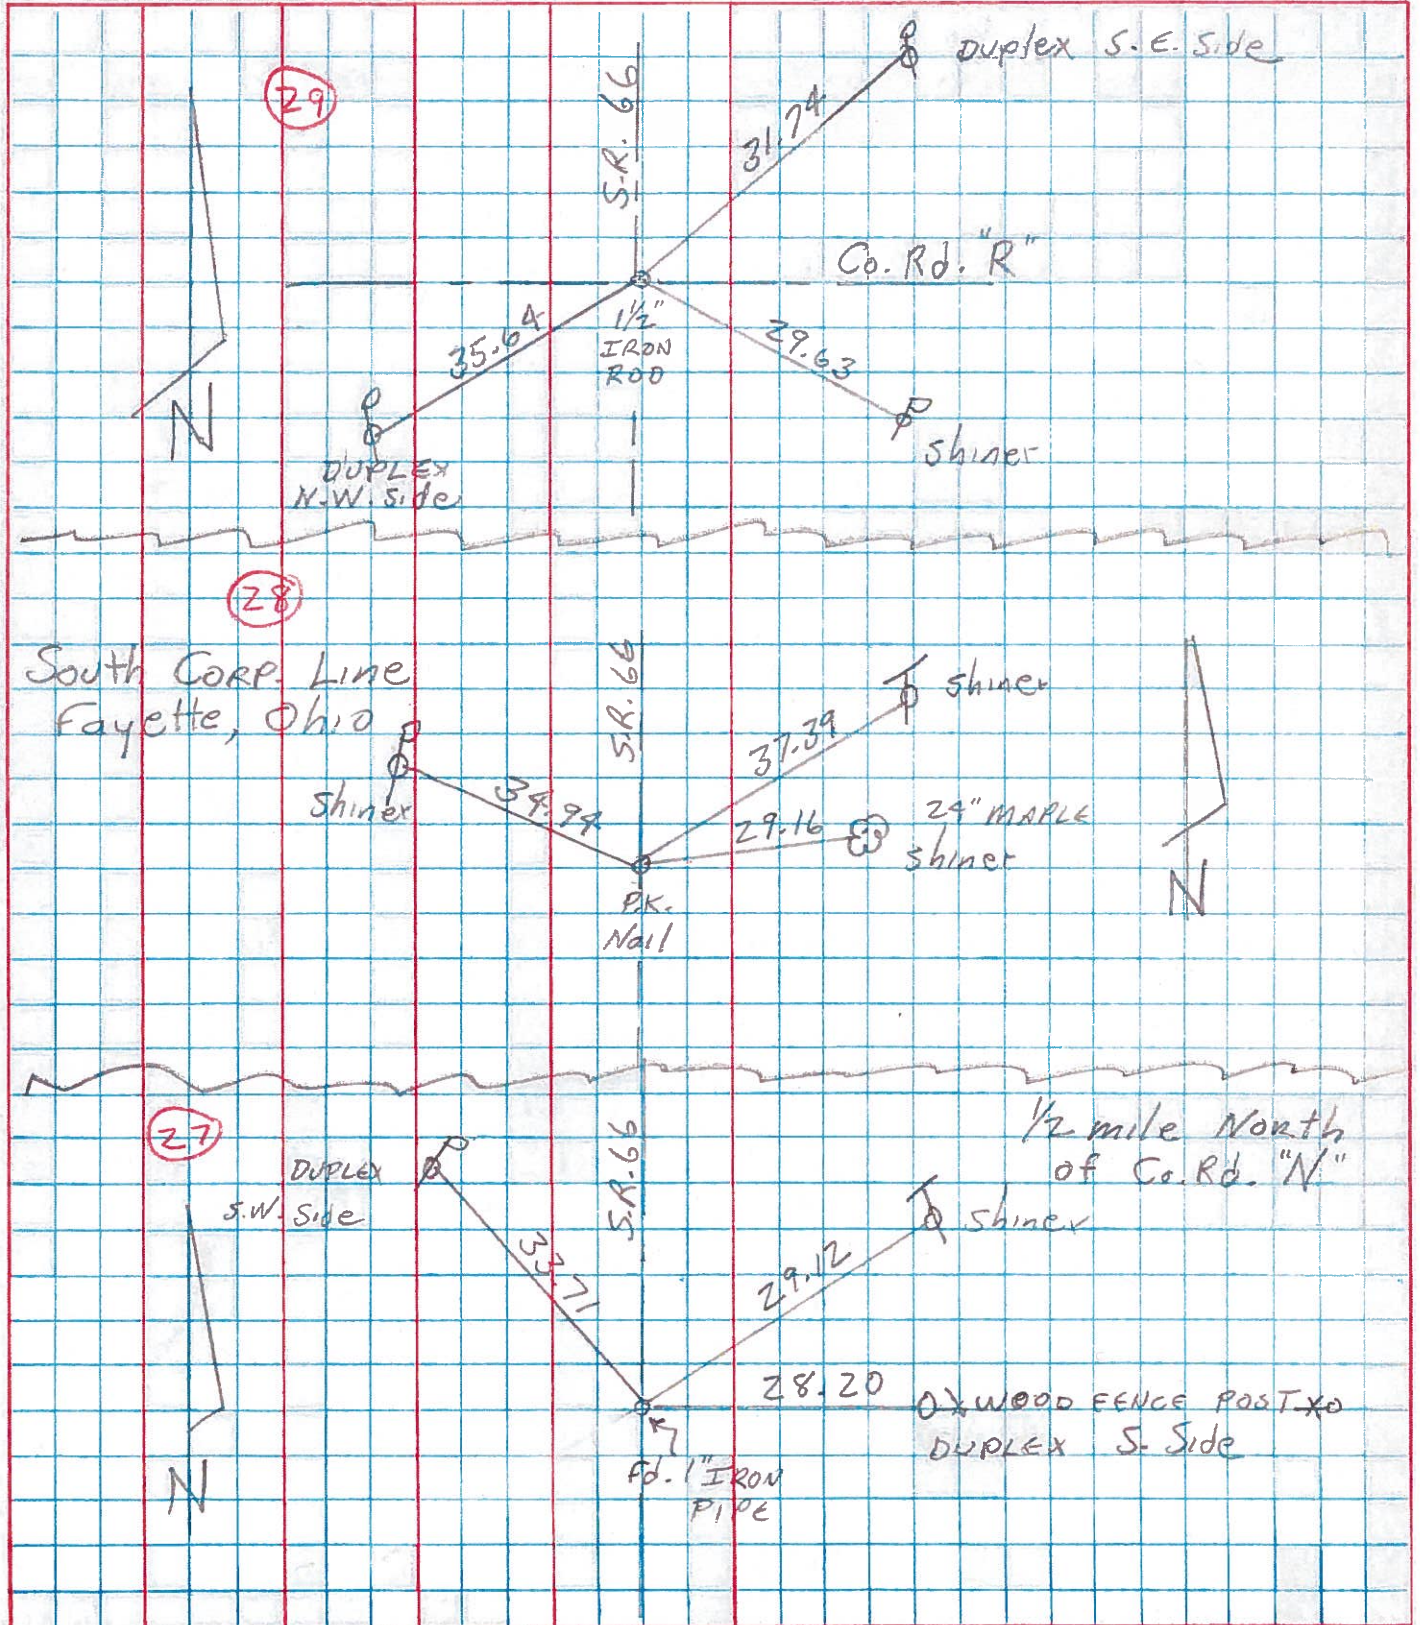 29
S.R. 66
Duplex S.E. Side
31.74
Co. Rd. "R"
35.64
1½"
IRON
ROD
29.63
shiner
DUPLEX
N.W. Side
N
28
South Corp. Line
Fayette, Ohio
S.R. 66
shiner
37.39
34.94
shiner
29.16
24" MAPLE
shiner
P.K.
Nail
N
27
½ mile North
of Co. Rd. "N"
S.R. 66
DUPLEX
S.W. Side
shiner
33.71
29.12
28.20
WOOD FENCE POST
DUPLEX S. Side
Fd. 1" IRON
PIPE
N